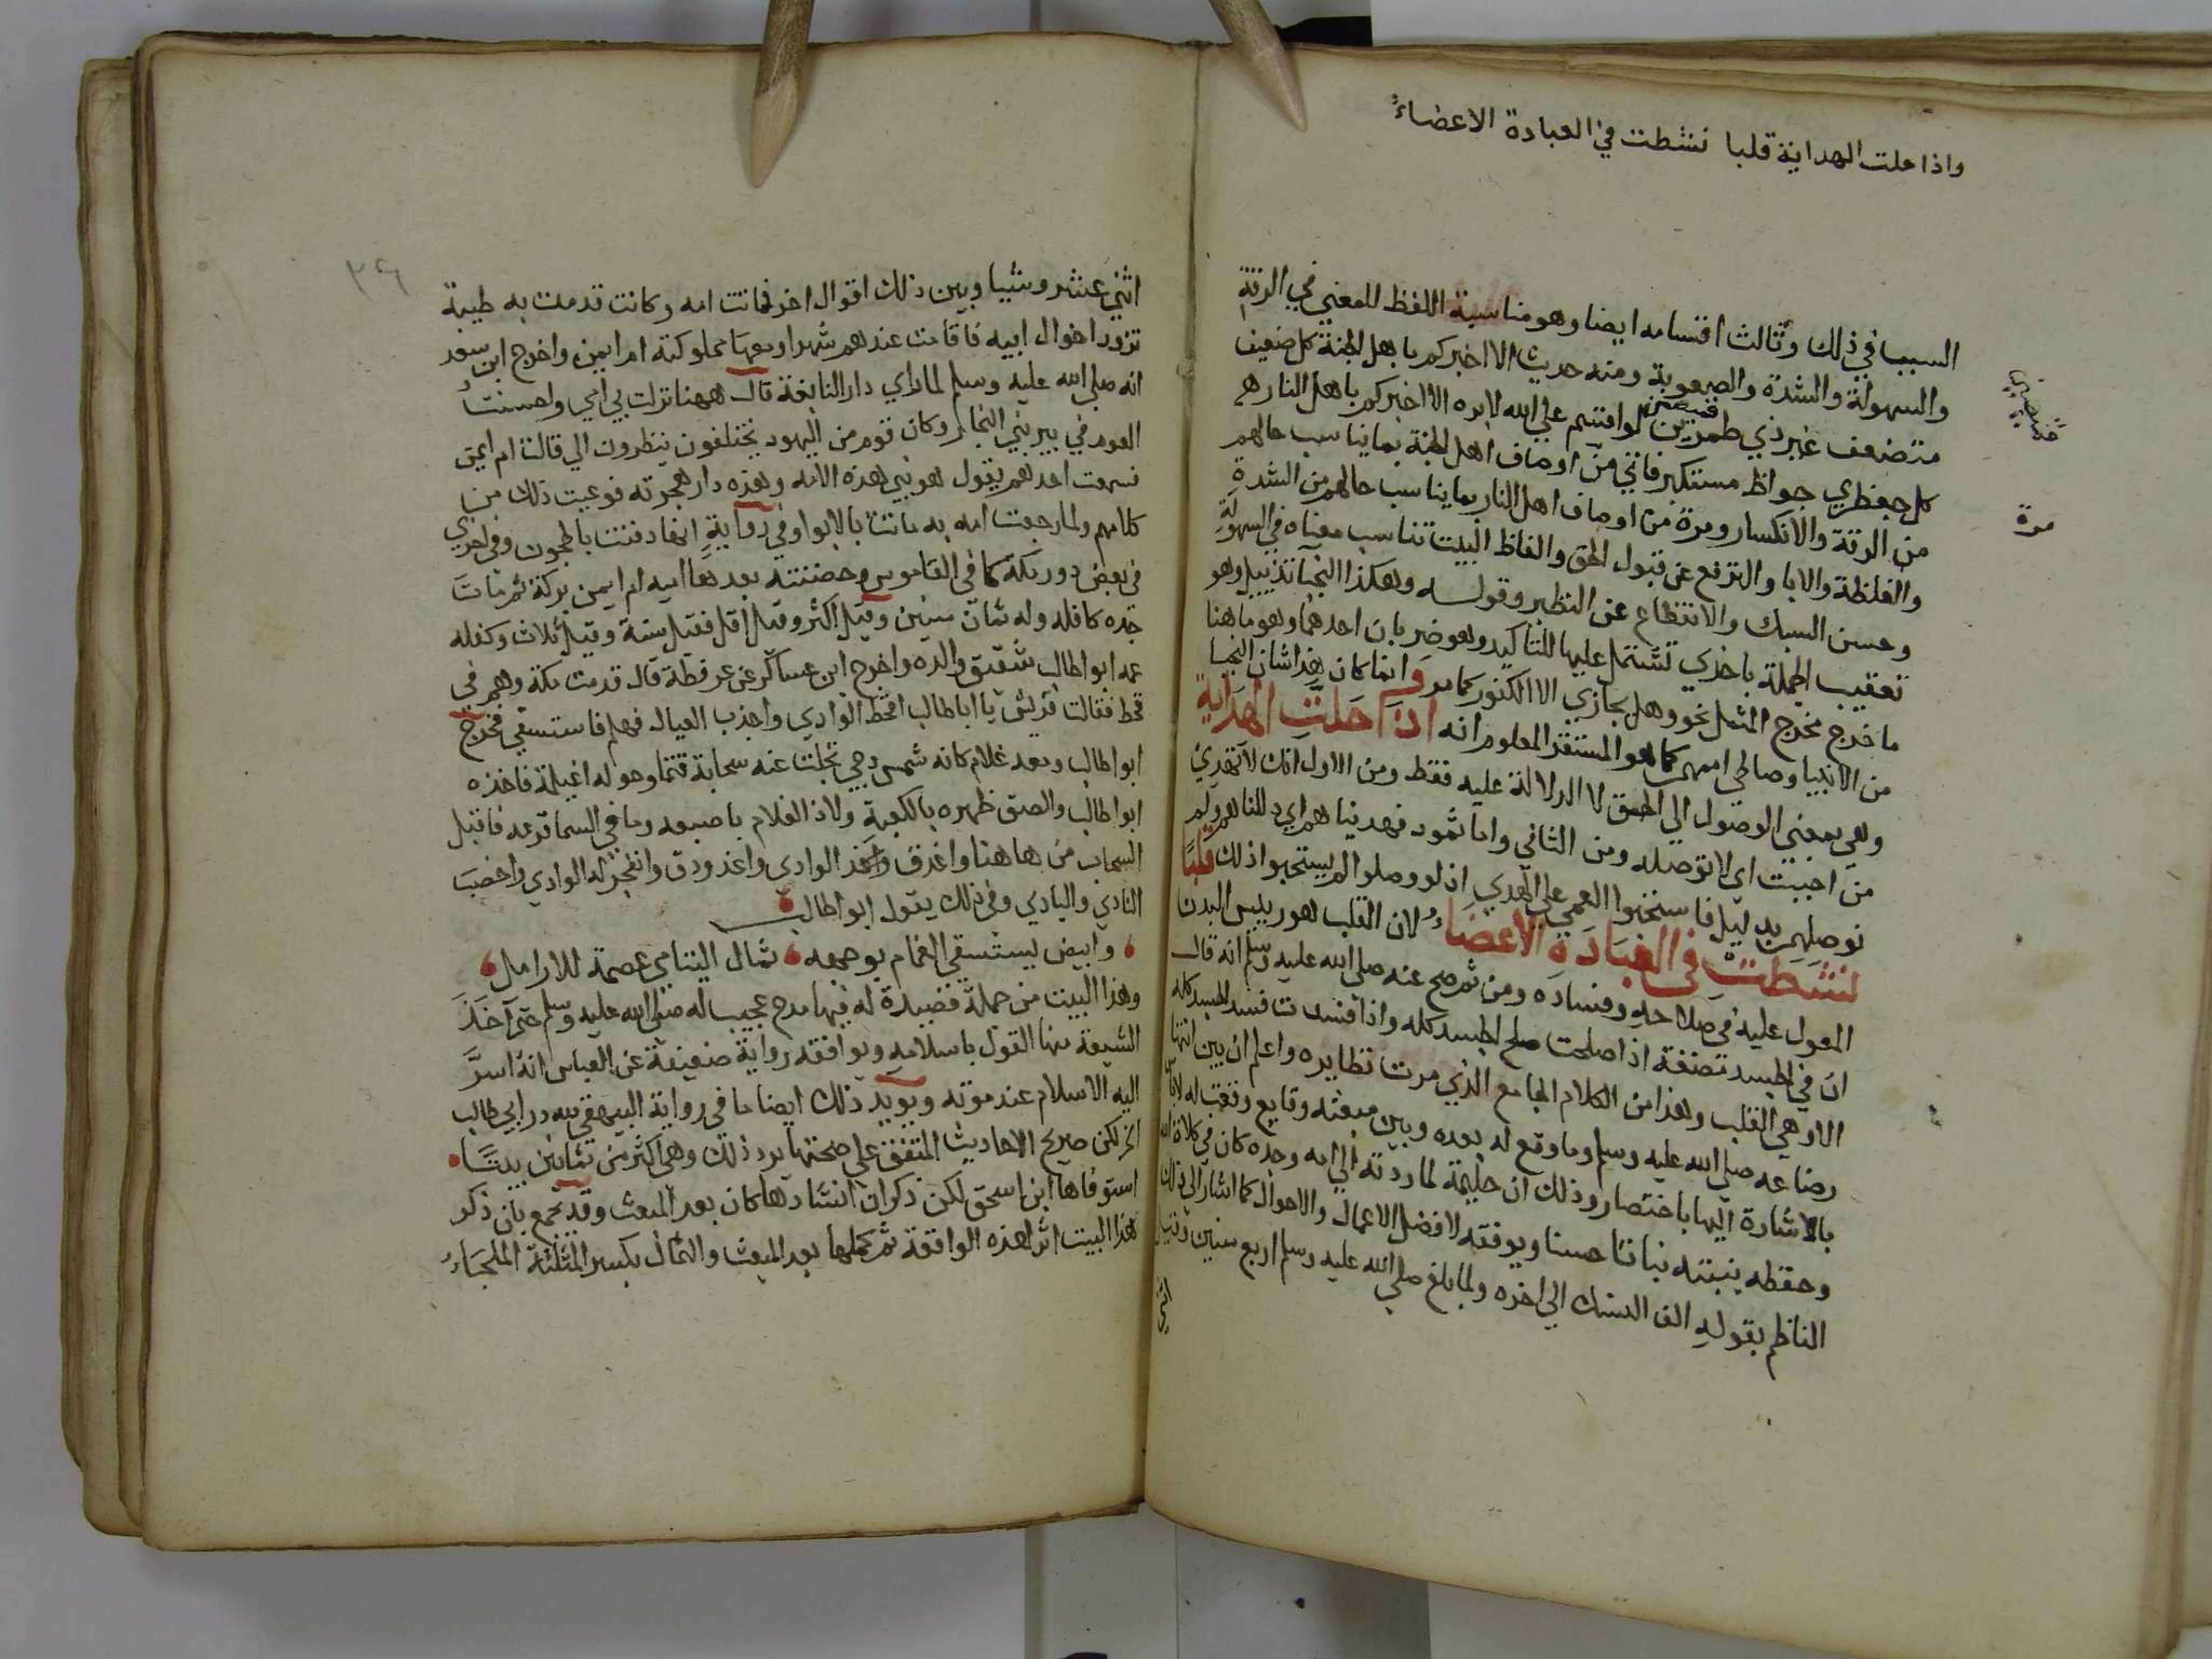 واذا حلت الهداية قلبا نشطت في العبادة الاعضاء
السبب في ذلك وثالث اقسامه ايضا وهو مناسبة اللفظ للمعني في الرقة
والسهولة والشدة والصعوبة ومنه حديث الا اخبركم باهل الجنة كل ضعيف
متضعف غير ذي طمرين لو اقسم علي الله لابره الا اخبركم باهل النار هم
كل جعظري جواظ مستكبر فاتي من اوصاف اهل الجنة بما يناسب حالهم
من الرقة والانكسار ومرة من اوصاف اهل النار بما يناسب حالهم من الشدة
مرة
والغلظة والابا والترفع عن قبول الحق والفاظ البيت تناسب معناه في السهولة
وحسن السبك والانتظام عن النظير وقوله وهكذا النجبا تذييل وهو
تعقيب الجملة باخري تشتمل عليها للتاكيد وهو ضربان احدهما وهو ما هنا
ما خرج مخرج المثل نحو وهل يجازي الا الكفور كما مر وانما كان هذا شان النجبا
من الانبيا وصالحي اممهم كما هو المستقر المعلوم انه اذا حلت الهداية
وهي بمعني الوصول الي الحق لا الدلالة عليه فقط ومن الاول انك لا تهدي
من احببت اي لا توصله ومن الثاني واما ثمود فهديناهم اي دللناهم ولم
نوصلهم بدليل فاستحبوا العمي علي الهدي اذ لو وصلوا لم يستحبوا ذلك قلبا
نشطت في العبادة الاعضاء لان القلب هو رييس البدن
المعول عليه في صلاحه وفساده ومن ثم صح عنه صلي الله عليه وسلم انه قال
ان في الجسد مضغة اذا صلحت صلح الجسد كله واذا فسدت فسد الجسد كله
الا وهي القلب وهذا من الكلام الجامع الذي مرت نظايره واعلم ان بين انتها
رضاعه صلي الله عليه وسلم وما وقع له بعده وبين مبعثه وقايع وقعت له لا باس
بالاشارة اليها باختصار وذلك ان حليمة لما ردته الي امه وجده كان في كلاة الله
وحفظه ينبته نباتا حسنا ويوفقه لافضل الاعمال والاحوال كما اشار الي ذلك
الناظم بقوله الف النسك الي اخره ولما بلغ صلي الله عليه وسلم اربع سنين وقيل
اثني
اثني عشر وشيا وبين ذلك اقوال اخر فماتت امه وكانت قدمت به طيبة
تزور اخوال ابيه فاقامت عندهم شهرا ومعها مملوكته ام ايمن واخرج ابن سعد
انه صلي الله عليه وسلم لما راي دار النابغة قال ههنا نزلت بي امي واحسنت
العوم في بير بني النجار وكان قوم من اليهود يختلفون ينظرون الي قالت ام ايمن
فسمعت احدهم يقول هو نبي هذه الامة وهذه دار هجرته فوعيت ذلك من
كلامهم ولما رجعت امه به ماتت بالابوا وفي رواية انها دفنت بالحجون وفي اخري
في بعض دور مكة كما في القاموس وحضنته بعدها ام ايمن بركة ثم مات
جده كافله وله ثمان سنين وقيل اكثر وقيل اقل فقيل ستة وقيل ثلاث وكفله
عمه ابو طالب شقيق والده واخرج ابن عساكر عن عرفطة قال قدمت مكة وهم في
قحط فقالت قريش يا ابا طالب اقحط الوادي واجذب العيال فهلم فاستسقي فخرج
ابو طالب ومعه غلام كانه شمس دجي تجلت عنه سحابة قتما وحوله اغيلمة فاخذه
ابو طالب والصق ظهره بالكعبة ولاذ الغلام باصبعه وما في السما قزعه فاقبل
السحاب من هاهنا واغدق الوادي واغدودق وانفجر له الوادي واخصب
النادي والبادي وفي ذلك يقول ابو طالب
وابيض يستسقي الغمام بوجهه ثمال اليتامي عصمة للارامل
وهذا البيت من جملة قصيدة له فيها مدح عجيب له صلي الله عليه وسلم حتي اخذ
الشيعة منها القول باسلامه ويوافقه رواية ضعيفة عن العباس انه اسر
اليه الاسلام عند موته ويويد ذلك ايضا ما في رواية البيهقي لله در ابي طالب
الخ لكن صريح الاحاديث المتفق علي صحتها يرد ذلك وهي اكثر من ثمانين بيتا
استوفاها ابن اسحق لكن ذكر ان انشادها كان بعد المبعث وقد يجمع بان ذكر
هذا البيت اثر هذه الواقعة ثم كملها بعد المبعث والثمال بكسر المثلثة الملجاء